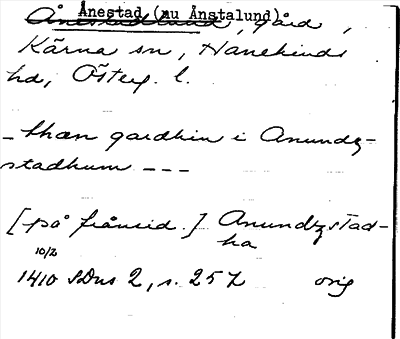 Ånestad (nu Ånstalund)
, gård,
Kärna sn, Hanekinds
hd, Österg. l.
_ thæn gardhin i Anundz-
stadhum - - -
[på frånsid.] Anundzstad-
ha
10/2
1410 SDns 2, s. 257 orig